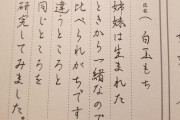 氏名(白玉もち
姉妹は生まれた
ときから一緒なので
比べられがちです
違うところと
同じところを
研究してみました。